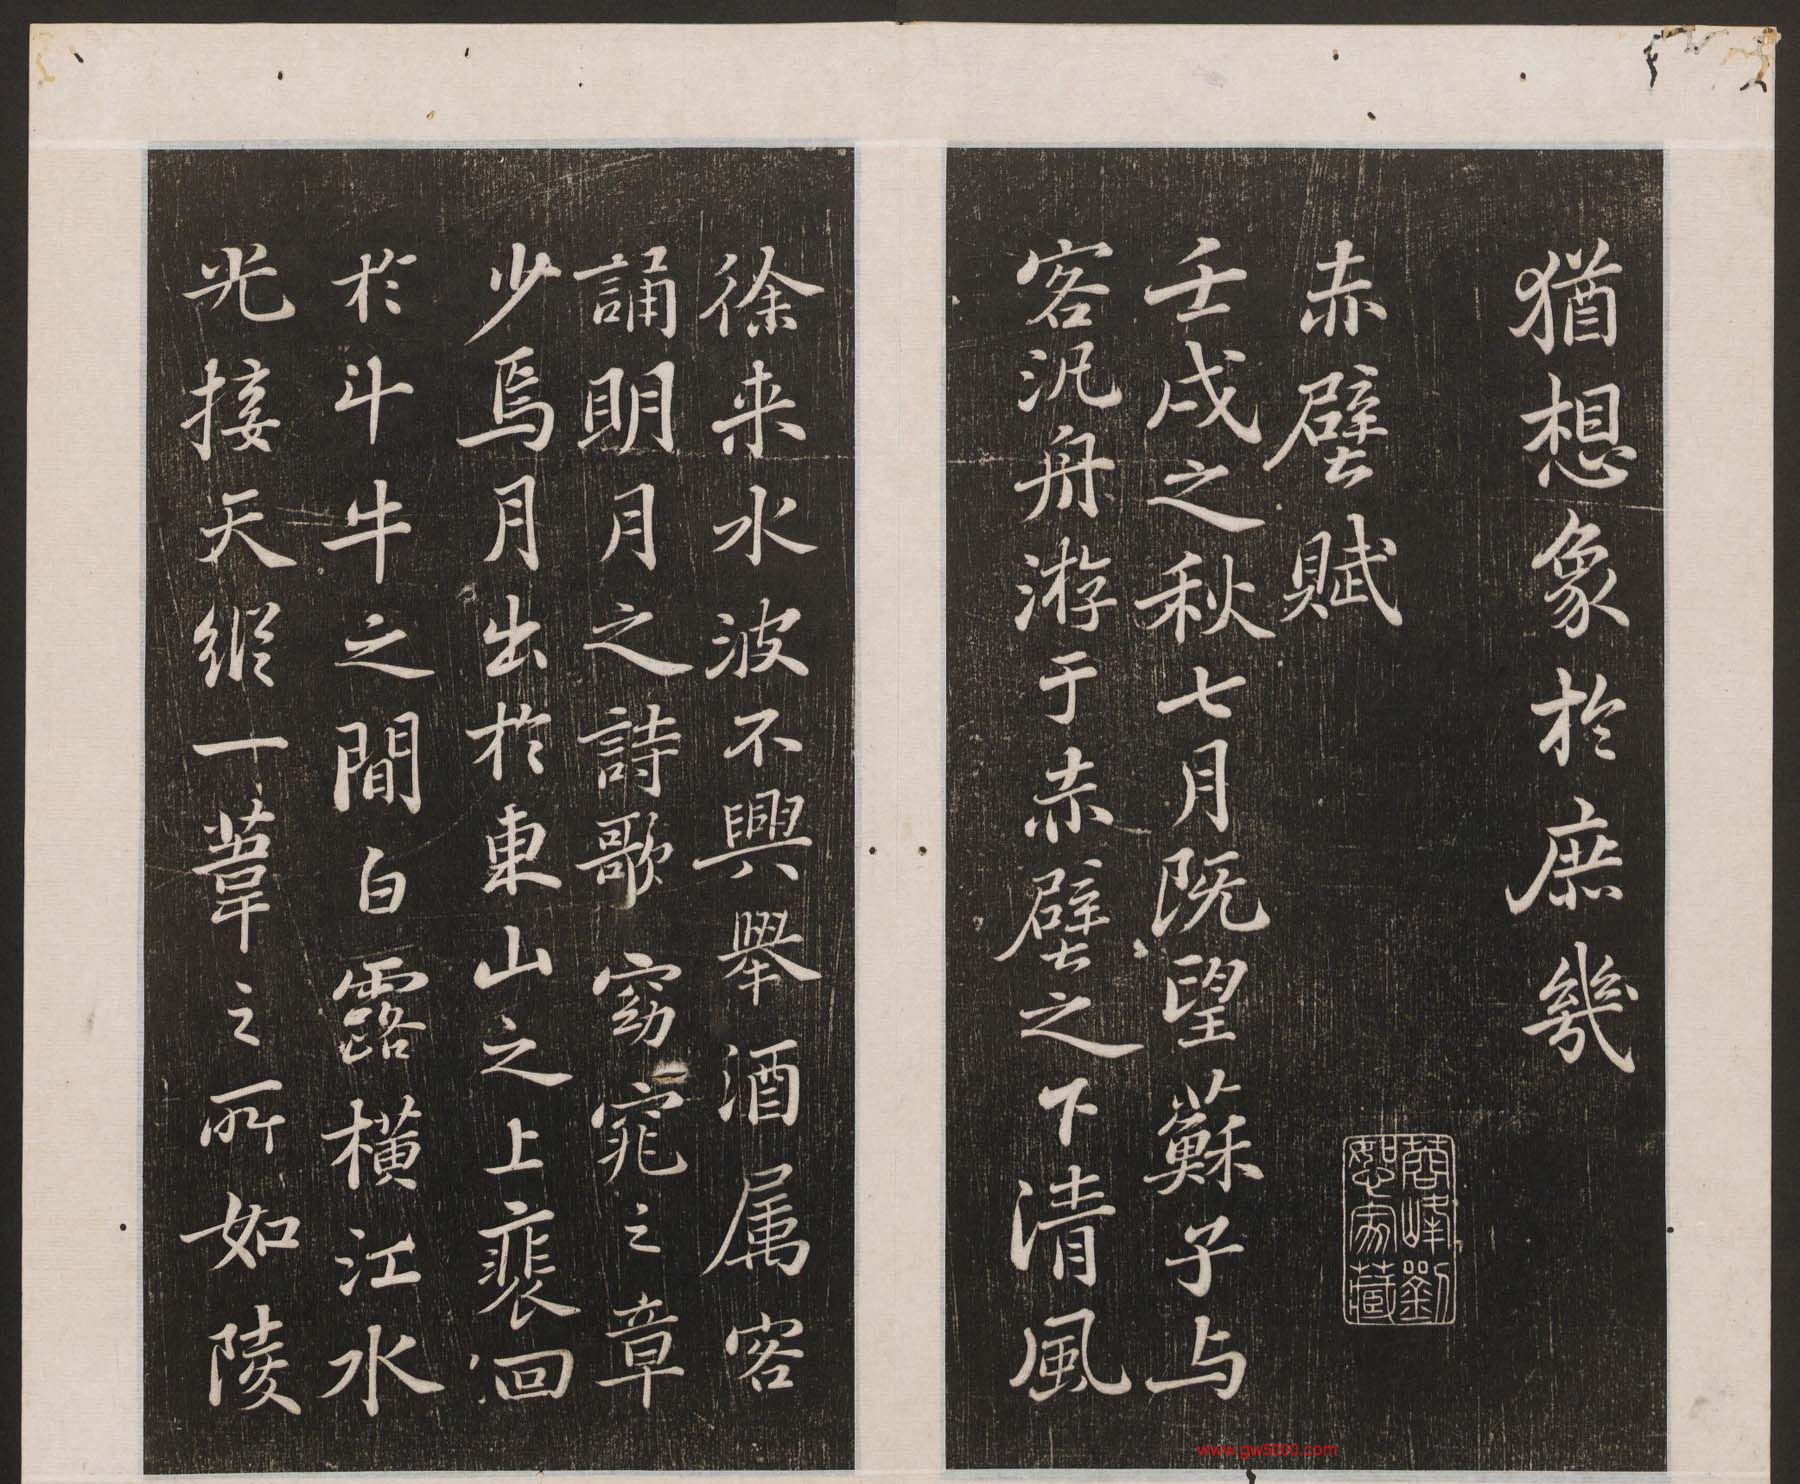 猶想象於庶幾
赤壁賦
壬戌之秋七月既望蘇子与
客汎舟游于赤壁之下清風
徐来水波不興舉酒属客
誦明月之詩歌窈窕之章
少焉月出於東山之上裵回
於斗牛之間白露橫江水
光接天縱一葦之所如陵
劉
恕家藏
www.gw5000.com